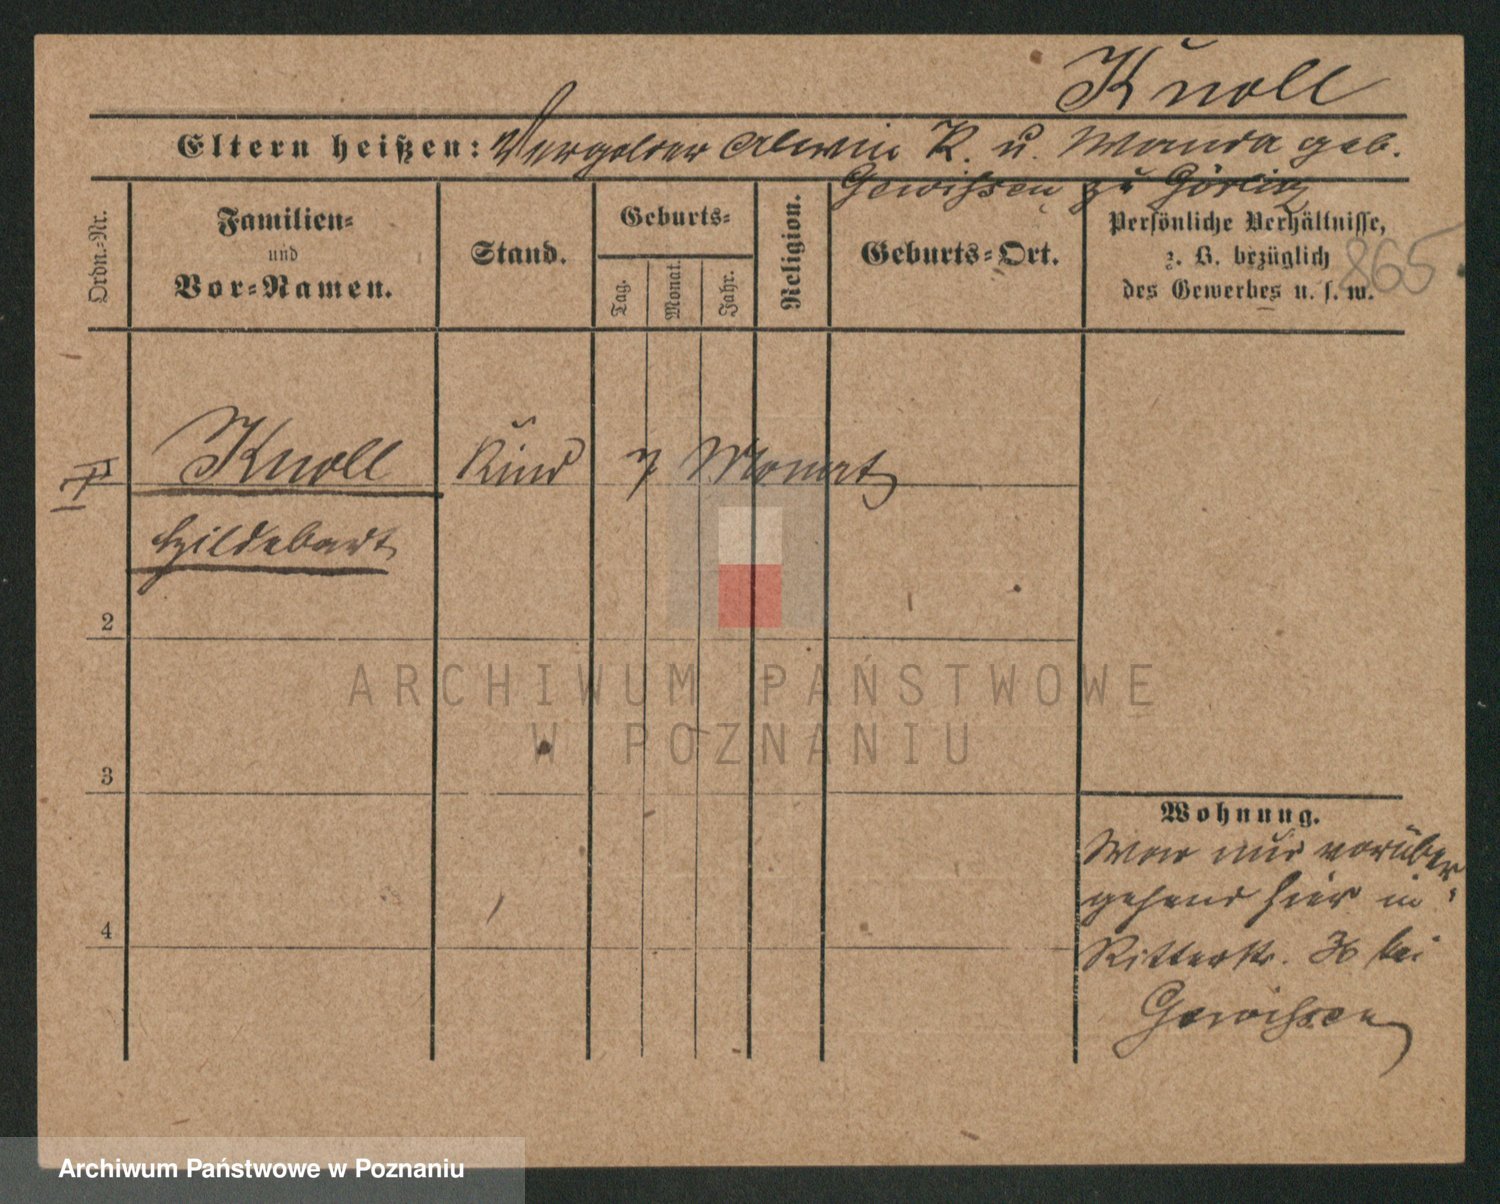 Knoll
Eltern heißen: Vergolder Alwin K. u. Wanda geb.
Gewissen zu Görlitz
Ordn.-Nr.
Familien-
und
Vor-Namen.
Stand.
Geburts-
Tag.
Monat.
Jahr.
Religion.
Geburts-Ort.
Persönliche Verhältnisse,
z. B. bezüglich
des Gewerbes u. s. w.
865
Knoll Kind 7 Monat
Hildebart
2
3
4
Wohnung.
War nur vorüber-
gehend hier in
Ritterstr. 36 bei
Gewissen
ARCHIWUM PAŃSTWOWE
W POZNANIU
Archiwum Państwowe w Poznaniu